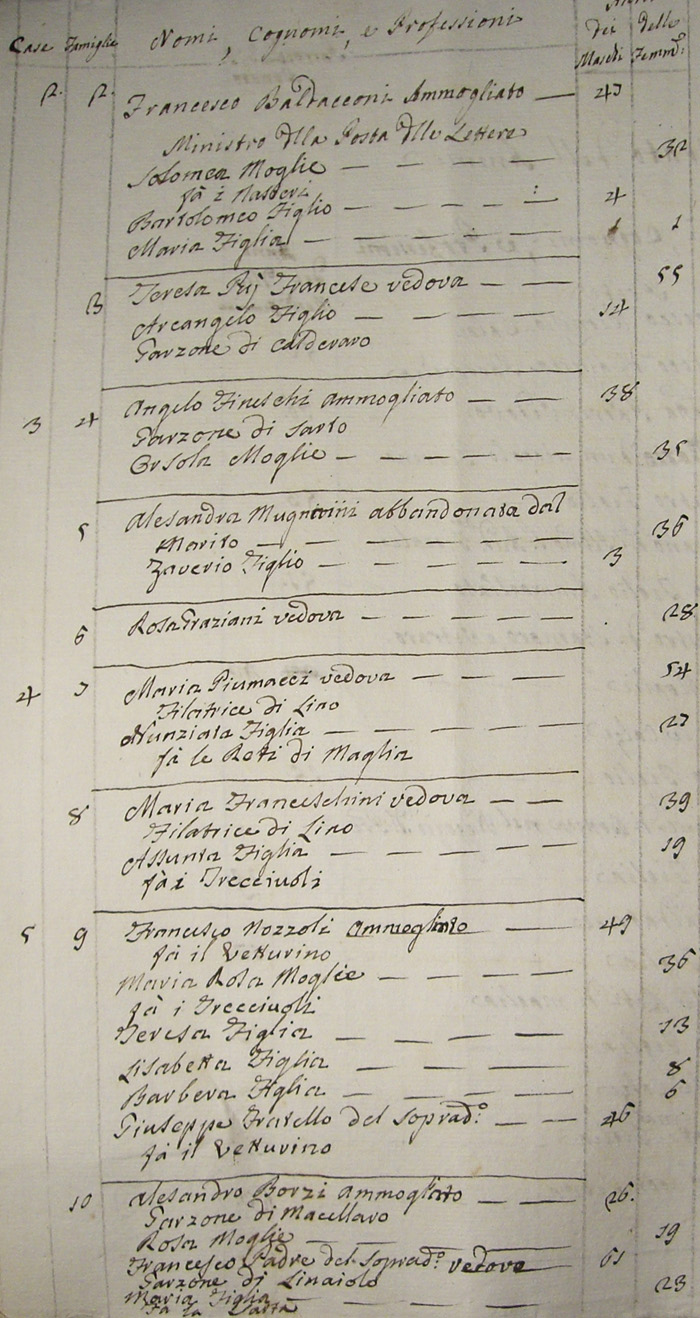 Case Famiglie Nomi, Cognomi, e Professioni dei Maschi delle Femm:
2. 2. Francesco Baldacconi Ammogliato — 47
Ministro dlla Posta dlle Lettere
Solomea Moglie — — — — 32
fà i Nastri
Bartolomeo Figlio — — — — : 4
Maria Figlia — — — — 1
3 Teresa Rij Francese vedova — — 55
Arcangelo Figlio — — — — 14
Garzone di Calderaro
3 4 Angelo Fineschi ammogliato — — 38
Garzone di Sarto
Orsola Moglie — — — — — 35
5 Alesandra Mugnaini abbandonata dal
Marito — — — — — 36
Zaverio Figlio — — — — — 3
6 Rosa Graziani vedova — — — — 28
4 7 Maria Piumacci vedova — — — 54
Filatrice di Lino
Nunziata Figlia — — — — 27
fà le Reti di Maglia
8 Maria Franceschini vedova — — 39
Filatrice di Lino
Assunta Figlia — — — — 19
fà i Trecciuoli
5 9 Francesco Nozzoli Ammogliato — — 49
fà il Vetturino
Maria Rosa Moglie — — — — 36
fà i Trecciuoli
Teresa Figlia — — — — 13
Lisabetta Figlia — — — — 8
Barbera Figlia — — — — 6
Giuseppe Fratello del Soprad:° — — 46
fà il Vetturino
10 Alesandro Borzi Ammogliato — — 26.
Garzone di Macellaro
Rosa Moglie — — — 19
Francesco Padre del Soprad:° vedovo — 61
Garzone di Linaiolo
Maria Figlia — — — — 23
Fà la